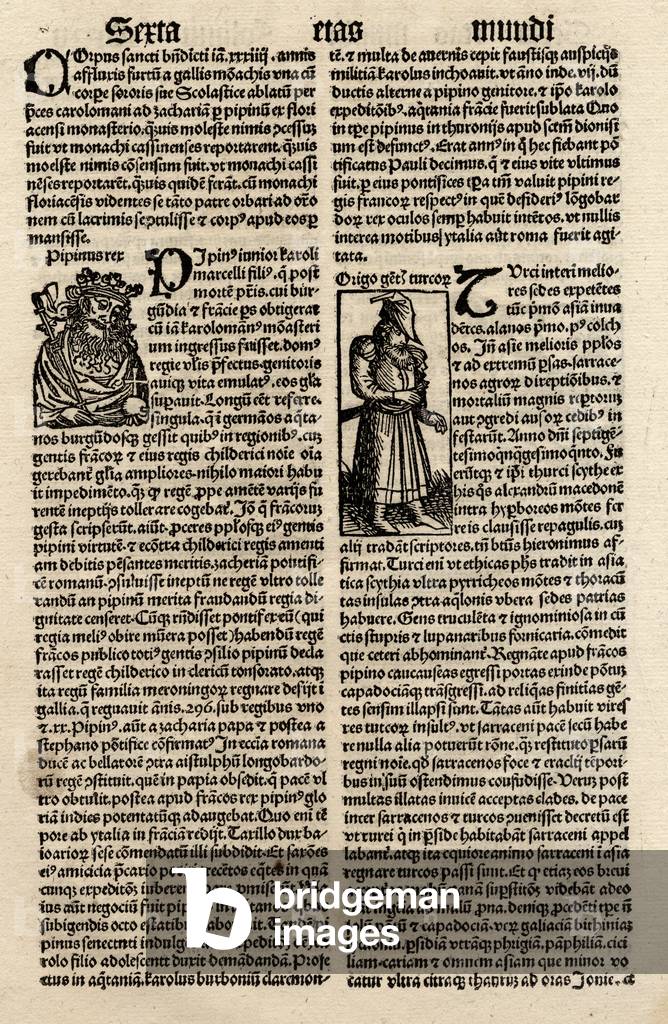 Sexta etas mundi
COrpus sancti bñdicti iã. xxxiiij. annis
affluxis furtũ a gallis mõachis vna cũ
corpe sororis sue Scolastice ablatũ per
p̃ces carolomani ad zachariã p̱ pipinũ ex flori
acensi monasterio. q̃uis moleste nimis ꝓcessus
fuit vt monachi cassinenses reportarent. q̃uis
moelste nimis cõsensum fuit. vt monachi cassi
nẽses reportarẽt. q̃uis quidẽ ferãt. cũ monachi
floriacẽsis videntes se tãto patre orbari ad orõ
nem cũ lacrimis se ꝓtulisse & corpꝰ apud eos p̱
mansisse.
Pipinus rex
PJpinꝰ iunior karoli
marcelli filiꝰ. q̃ post
mortẽ pr̃is. cui bur-
gũdia & frãcie p̱s obtigerat
cũ iã karolomanꝰ mõasteri
um ingressus fuisset. domꝰ
regie vlis p̃fectus. genitoris
auicq̃ vita emulatꝰ. eos gl̃ia
supauit. Longũ eẽt referre.
singula. q̃ i germãos aq̃ta-
nos burgũdosq̃ gessit quibꝰ in regionibꝰ. cuz
gentis frãcoꝝ & eius regis childerici noie oĩa
gerebant̃ gl̃ia ampliores. nihilo maiori habu
it impedimẽto. q̃z ꝙ regẽ ꝓpe amẽtẽ varijs fu
rentẽ ineptijs tollerare cogebat̃. Jõ q̃ francoruz
gesta scripserũt. aiũt. ꝓceres pplosq̃ eiꝰ gentis
pipini virtutẽ. & ecõtra childerici regis amenti
am debitis pẽsantes meritis. zacheriã pontifi-
cẽ romanũ. ꝯsuluisse ineptũ ne regẽ vltro tolle
randũ an pipinũ merita fraudandũ regia di-
gnitate censeret. Cũq̃ rñdisset pontifex eũ (qui
regia meliꝰ obire mũera posset) habendũ regẽ
frãcos publico totiꝰ gentis ꝯsilio pipinũ decla
rasset regẽ childerico in clericũ tonsorato. atq̃
ita regũ familia meroningoꝝ regnare desijt i
gallia. q̃ regnauit ãnis. 296. sub regibus vno
& .xx. Pipinꝰ. aũt a zacharia papa & postea a
stephano põtifice cõfirmatꝰ Jn eccĩa romana
ducẽ ac bellatorẽ ꝯtra aistulphũ longobardo-
rũ regẽ ꝯstituit. quẽ in papia obsedit. q̃ pacẽ vl
tro obtulit. postea apud frãcos rex pipinꝰ glo
riã indies potentatũq̃ adaugebat. Quo eni tẽ
pore ab ytalia in frãciã redijt. Taxillo dux ba-
ioarioꝝ sese cõmendatũ illi subdidit. Et saxões
eiꝰ amicicia p̃cario trecẽtos eq̃tes in quã
cunq̃ expeditõz iuberent
ius aũt negociũ fuit
subigendis octo
pinus senectuti indulg
rolo filio adolescenti duxit demãdandã. Profe
ctus in aq̃taniã. karolus burboniũ claremon-
tẽ. & multa de auernis cepit faustisq̃ auspicijs
militiã karolus inchoauit. vt ãno inde. vij. dũ
ductis alterne a pipino genitore. & ip̃o karolo
expeditõibꝰ. aq̃tania frãcie fuerit sublata Quo
in tp̃e pipinus in thuronijs apud sctm̃ dionisi
um est defunctꝰ. Erat annꝰ in q̃ hec fiebant põ
tificatus Pauli decimus. q̃ & eius vite vltimus
fuit. p̱ eius pontifices tp̃a tm̃ valuit pipini re-
gis francoꝝ respectꝰ in quẽ desiderĩ lõgobar
doꝝ rex oculos semp̱ habuit intẽtos. vt nullis
interea motibus ytalia aũt roma fuerit agi-
tata.
Origo gẽtꝭ turcoꝝ
TUrci interĩ melio-
res sedes expetẽtes
tũc p̃mõ asiã inua
dẽtes. alanos p̃mo. pꝰ colch
os. Jñ asie melioris pplos
& ad extremũ p̱sas. sarrace-
nos agroꝝ direptiõibus. &
mortaliũ magnis raptoruz
aut ꝯgredi ausoꝝ cedibꝰ in
festarũt. Anno dñi septigẽ-
tesimoqnqgesimoqnto. Fu
erũtq̃ & ip̃i thurci scythe ex
his q̃s alexandrũ macedonẽ
intra hyꝑboreos mõtes fer
reis clausisse repagulis. cuz
alij tradãt scriptores. tñ btũs hieronimus af-
firmat. Turci eni vt ethicas phs tradit in asia
tica scythia vltra pyrricheos mõtes & thoracũ
tas insulas ꝯtra aq̃lonis vbera sedes patrias
habuere. Gens truculẽta & ignominiosa in cũ
ctis stupris & lupanaribus fornicaria. cõmedit
que ceteri abhominant̃. Regnãte apud frãcos
pipino caucaseas egressi portas exinde põtuz
capadociãq̃ trãsgressi. ad reliq̃as finitias gẽ-
tes sensim illapsi sunt. Tãtas aũt habuit vires
res turcoꝝ insultꝰ. vt sarraceni pacẽ secũ habe
re nulla alia potuerũt rõne. q̃z restituto p̱sarũ
regni noie. qđ sarracenos foce & eraclij tẽpori
bus in suũ ostendimus confudisse. Veruz post
multas illatas inuicẽ acceptas clades. de pace
inter sarracenos & turcos ꝯuenisset decretũ est
vt turci q̃ in p̱side habitabãt sarraceni appel
labant̃. atq̃ ita equiore animo sarraceni i asia
regnare turcos passi sunt. Et q̃ etiaz eos breui
superstitiõs videbãt adeo
denicq̃ ꝓcedẽti tp̃e iñ
& capadociã. vꝝ galaciã bithiniaz
p̱sidiã vtrãq̃ phrigiã. pãphiliã. cici
liam. cariam & omnem asiam que minor. vo
catur vltra citraq̃ thauruz ad oras Jonie. &
b
bridgeman
images